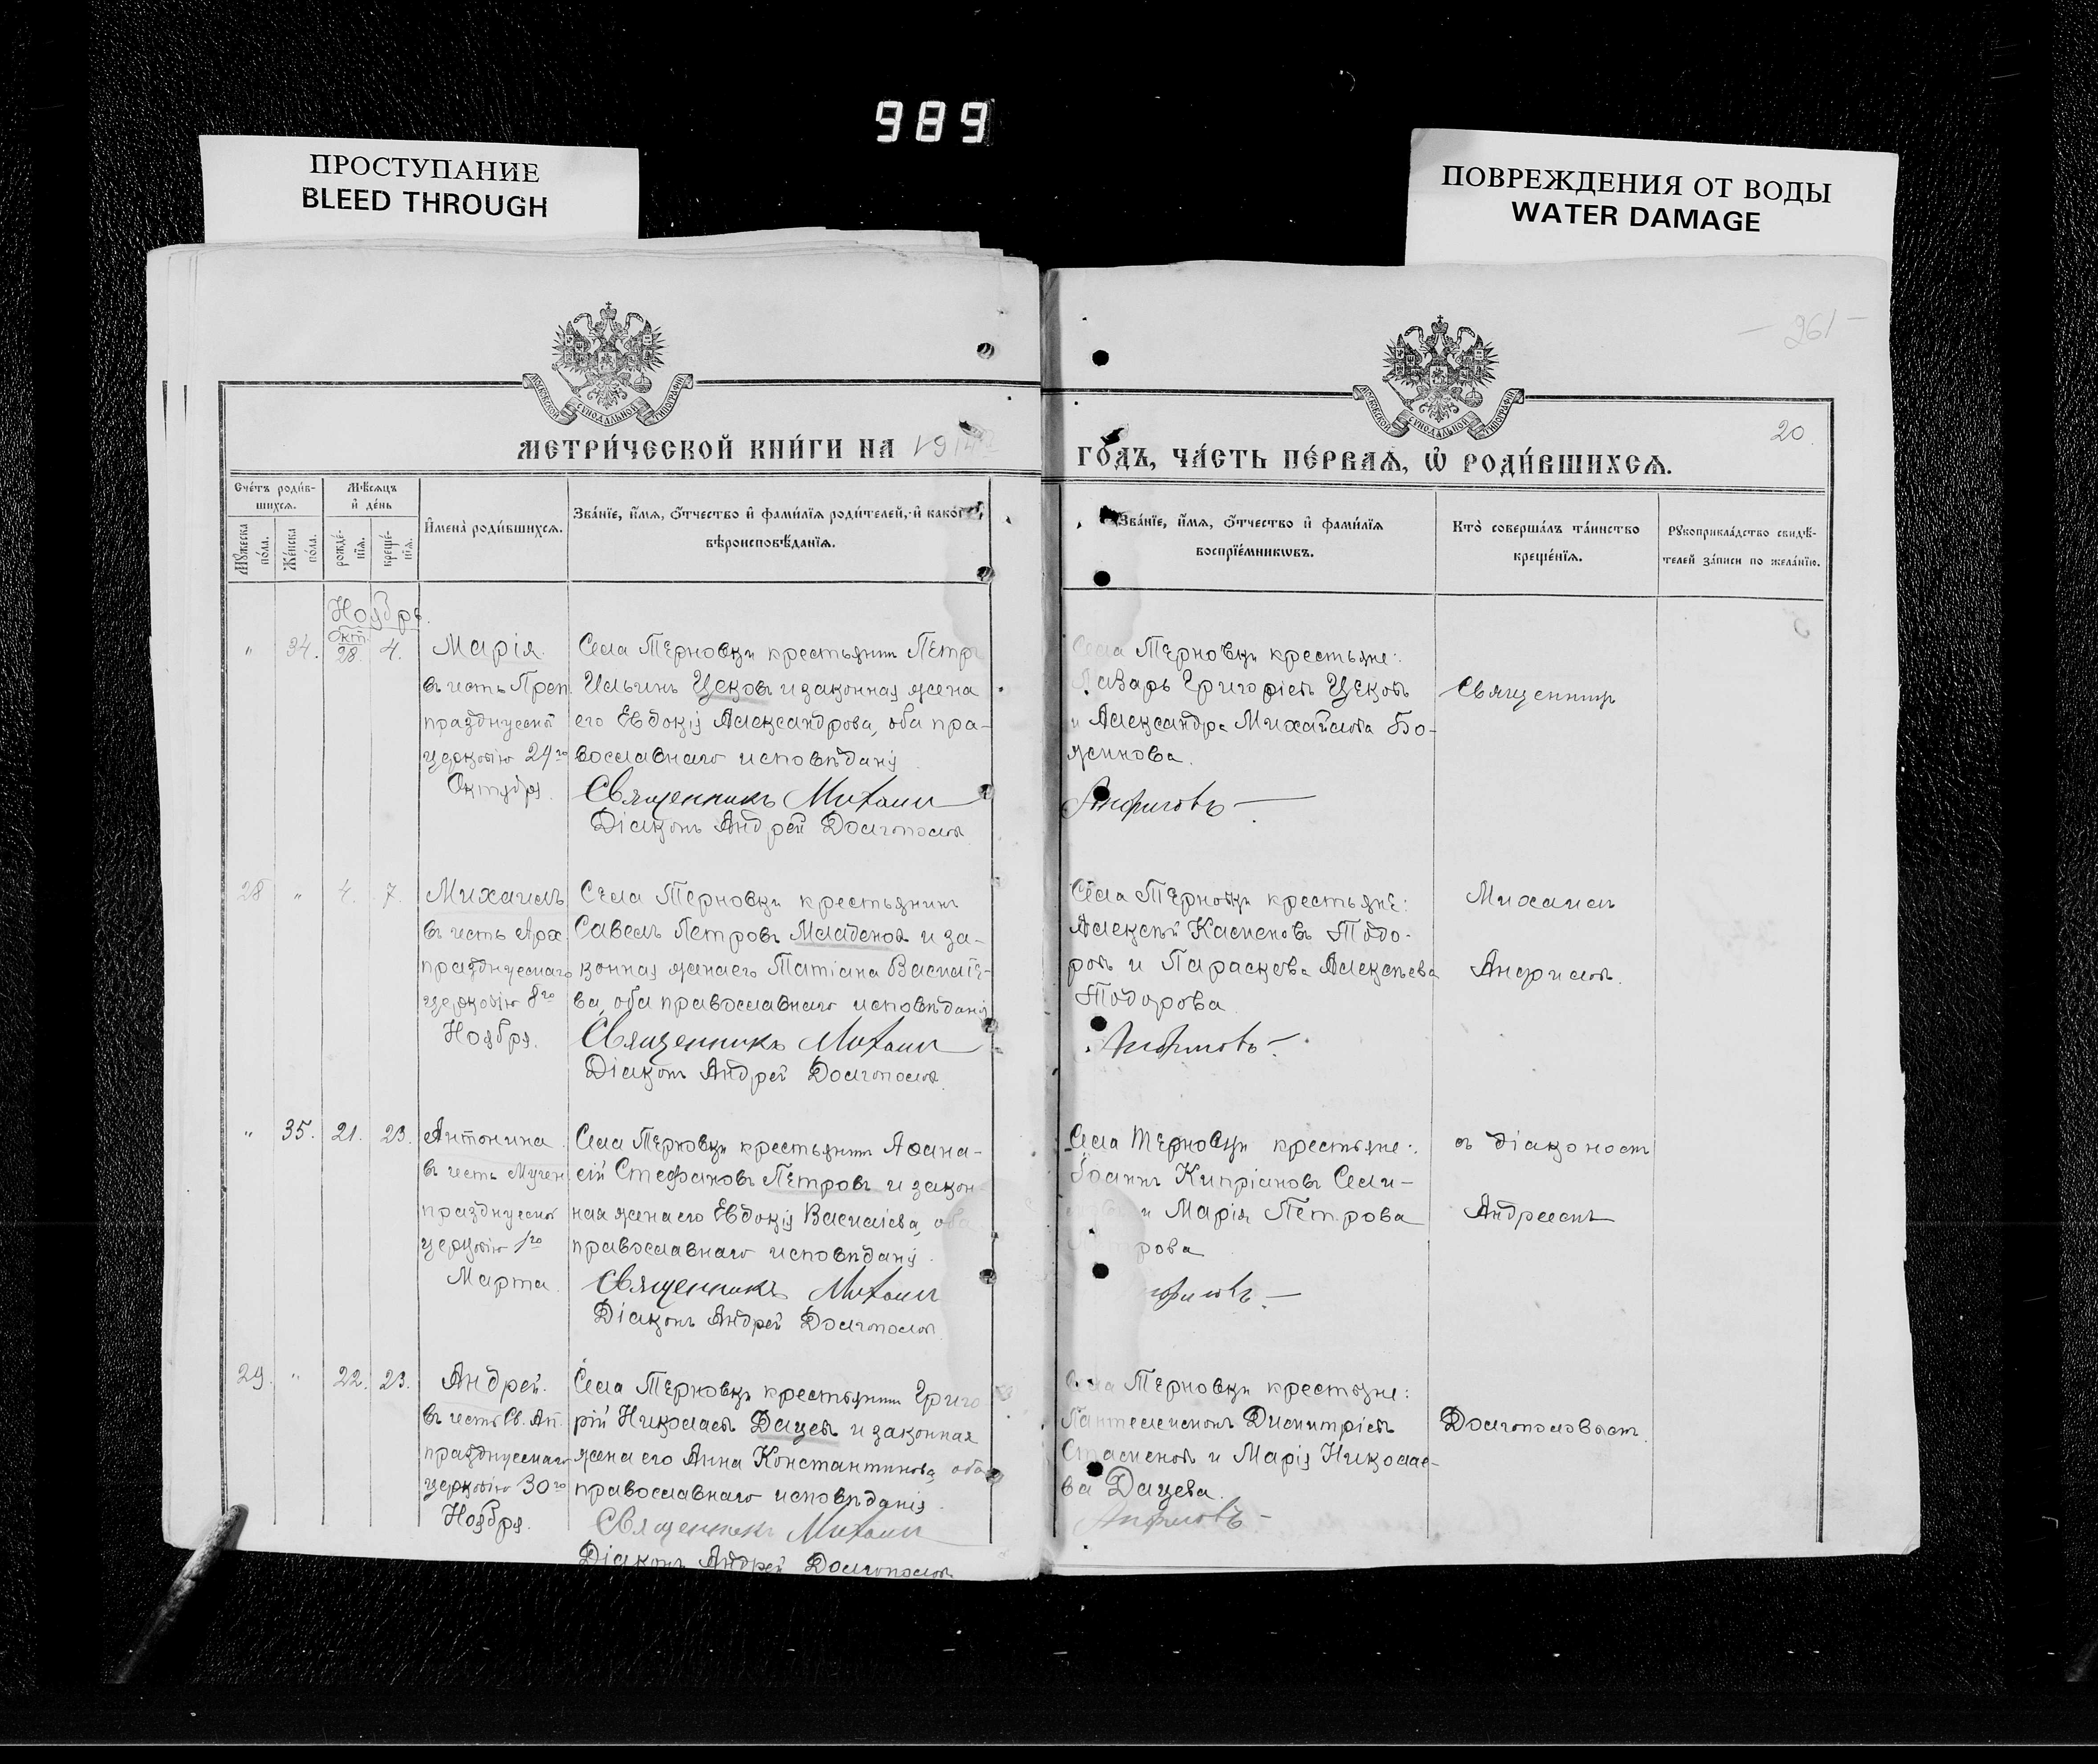 989
ПРОСТУПАНИЕ
BLEED THROUGH
ПОВРЕЖДЕНИЯ ОТ ВОДЫ
WATER DAMAGE
961
20.
МОСКОВСКОЙ СѴНОДАЛЬНОЙ ТИПОГРАФІИ
МОСКОВСКОЙ СѴНОДАЛЬНОЙ ТИПОГРАФІИ
МЕТРИ́ЧЕСКОЙ КНИ́ГИ НА 1914
ГО́ДЪ, ЧА́СТЬ ПЕ́РВАЯ, Ѡ҆ РОДИ́ВШИХСЯ.
Сче́тъ роди́в-
шихся.
Мꙋ́жеска по́ла.
Же́нска по́ла.
Мѣ́сяцъ
и҆ де́нь
рожде́-
нїя.
креще́-
нїя.
И҆мена̀ роди́вшихся.
Зва́нїе, и҆́мя, ѻ҆́тчество и҆ фами́лїя роди́телей, и҆ како́гѡ
вѣроисповѣ́данїя.
Зва́нїе, и҆́мя, ѻ҆́тчество и҆ фами́лїя
воспрїе́мникѡвъ.
Кто̀ соверша́лъ та́инство
креще́нїя.
Рꙋкоприкла́дство свидѣ́-
телей за́писи по жела́нїю.
Ноябрь.
" 34. Окт. 28. 4.
Марія.
въ честь Преп.
празднуемой
церковію 29го
Октября.
Села Терновки крестьянинъ Петръ
Ильинъ Цековъ и законная жена
его Евдокія Александрова, оба пра-
вославнаго исповѣданія
Священникъ Михаилъ
Діаконъ Андрей Долгополовъ
Села Терновки крестьяне:
Лазарь Григоріевъ Цековъ
и Александра Михайлова Бо-
жинова.
Анфимовъ
Священникъ
28 " 4. 7.
Михаилъ
въ честь Арх.
празднуемаго
церковію 8го
Ноября.
Села Терновки крестьянинъ
Савелъ Петровъ Младеновъ и за-
конная жена его Татіана Василіе-
ва, оба православнаго исповѣданія
Священникъ Михаилъ
Діаконъ Андрей Долгополовъ.
Села Терновки крестьяне:
Алексѣй Касьеновъ Тодо-
ровъ и Параскева Алексѣева
Тодорова
Анфимовъ
Михаилъ
Анфимовъ.
" 35. 21. 23.
Антонина
въ честь Мучен.
празднуемой
церковію 1го
Марта.
Села Терновки крестьянинъ Аѳана-
сій Стефановъ Петровъ и закон-
ная жена его Евдокія Василіева, оба
православнаго исповѣданія.
Священникъ Михаилъ
Діаконъ Андрей Долгополовъ.
Села Терновки крестьяне:
Іоаннъ Кипріановъ Сели-
и Марія Петрова
рова
фимовъ
съ діакономъ
Андреемъ
29. " 22. 23.
Андрей.
въ честь Св. Ап.
празднуемаго
церковію 30го
Ноября.
Села Терновки крестьянинъ Григо
рій Николаевъ Дацевъ и законная
жена его Анна Константинова, оба
православнаго исповѣданія.
Священникъ Михаилъ
Діаконъ Андрей Долгополовъ
Села Терновки крестьяне:
Пантелеимонъ Димитріевъ
Стаменовъ и Марія Николае-
ва Дацева.
Анфимовъ
Долгополовымъ.